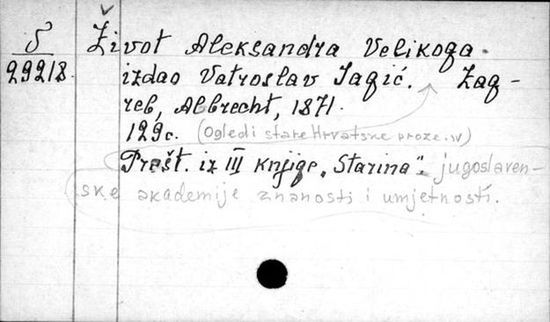 S
29218
Život Aleksandra Velikoga.
izdao Vatroslav Jagić. Zag-
reb, Albrecht, 1871.
129c. (Ogledi stare Hrvatske proze. IV)
Prešt. iz III knjige „Starina“. jugoslaven-
ske akademije znanosti i umjetnosti.